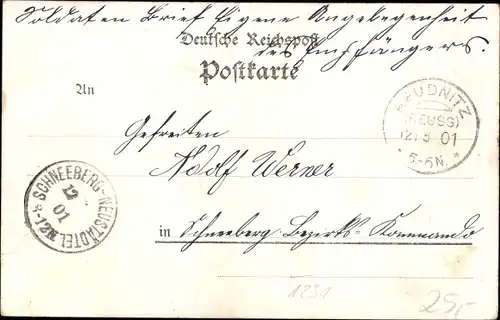 Soldaten Brief Eigene Angelegenheit
Deutsche Reichspost
des Empfängers.
Postkarte
An
REUDNITZ
(REUSS)
12/3 01
* 5-6N. *
Gefreiten
Adolf Werner
SCHNEEBERG-NEUSTÄDTEL
12
01
8-12N
in Schneeberg Bezirks-Kommando
1231
25,-